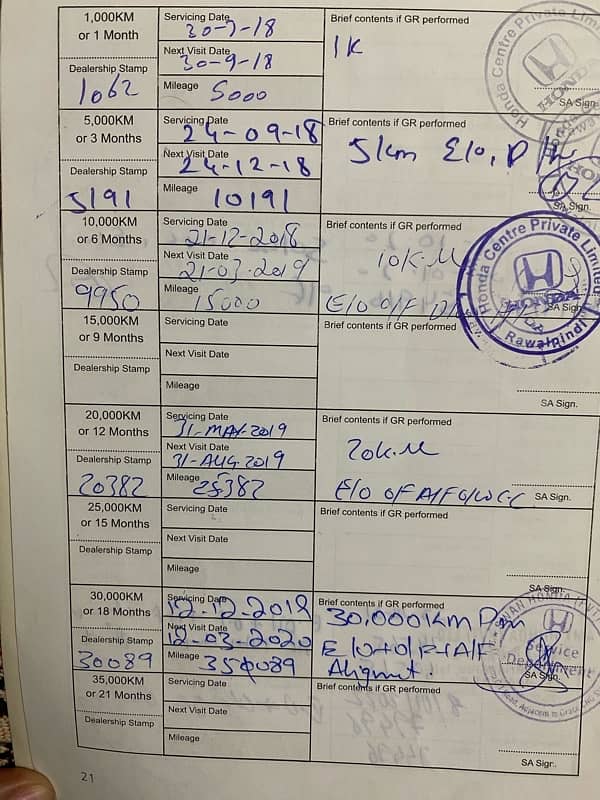 1,000KM
or 1 Month
Servicing Date
30-7-18
Next Visit Date
30-9-18
Brief contents if GR performed
1K
Dealership Stamp
1062
Mileage 5000
SA Sign.
Honda Centre Private Limited
HONDA
5,000KM
or 3 Months
Servicing Date
24-09-18
Next Visit Date
24-12-18
Brief contents if GR performed
5/km E/O,
Dealership Stamp
5191
Mileage 10191
SA Sign.
10,000KM
or 6 Months
Servicing Date
21-12-2018
Next Visit Date
21-03-2019
Brief contents if GR performed
10K.M
Dealership Stamp
9950
Mileage 15000
E/O O/F
SA Sign
Honda Centre Private Limited
HONDA
Rawalpindi
15,000KM
or 9 Months
Servicing Date
Next Visit Date
Brief contents if GR performed
Dealership Stamp
Mileage
SA Sign.
20,000KM
or 12 Months
Servicing Date
31-MAY-2019
Next Visit Date
31-AUG-2019
Brief contents if GR performed
20K.M
Dealership Stamp
20382
Mileage 25382
E/O O/F A/F
SA Sign.
25,000KM
or 15 Months
Servicing Date
Next Visit Date
Brief contents if GR performed
Dealership Stamp
Mileage
SA Sign.
30,000KM
or 18 Months
Servicing Date
12-12-2019
Next Visit Date
12-03-2020
Brief contents if GR performed
30,000km
Dealership Stamp
30089
Mileage
SA Sign.
HONDA
Service
Department
35,000KM
or 21 Months
Servicing Date
Next Visit Date
Brief contents if GR performed
Dealership Stamp
Mileage
SA Sign..
21